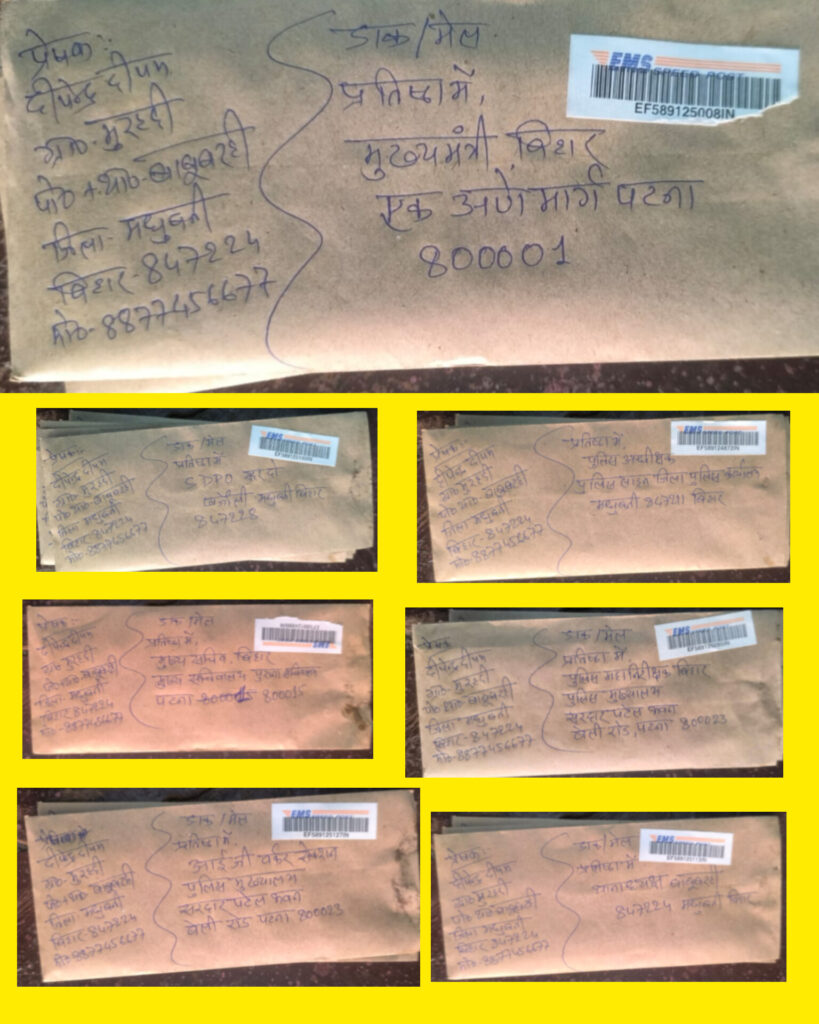 प्रेषक :
दीपेन्द्र दीपम
ग्रा०- मुरहदी
पो० + था०- बाबूबरही
जिला- मधुबनी
बिहार- 847224
मो०- 8877456677
डाक/मेल
प्रतिष्ठा में,
मुख्यमंत्री, बिहार
एक अणे मार्ग पटना
800001
EMS SPEED POST
EF589125008IN
प्रेषक :
दीपेन्द्र दीपम
ग्रा०- मुरहदी
पो० + था० बाबूबरही
जिला मधुबनी
बिहार 847224
मो०- 8877456677
डाक/मेल
प्रतिष्ठा में
SDPO सदर दो
खजौली मधुबनी बिहार
847228
EMS
प्रेषक :
दीपेन्द्र दीपम
ग्रा० मुरहदी
पो० था० बाबूबरही
जिला मधुबनी
बिहार- 847224
मो०-8877456677
प्रतिष्ठा में
पुलिस अधीक्षक
पुलिस लाइन जिला पुलिस कार्यालय
मधुबनी 847211 बिहार
EMS
EF589124872IN
प्रेषक :-
दीपेन्द्र दीपम
ग्रा० मुरहदी
पो०+था० बाबूबरही
जिला- मधुबनी
बिहार 847224
मो०-8877456677
डाक/मेल
प्रतिष्ठा में,
मुख्य सचिव, बिहार
मुख्य सचिवालय पुराना सचिवालय
पटना 800015
EMS
प्रेषक
दीपेन्द्र दीपम
ग्रा० मुरहदी
पो० था० बाबूबरही
जिला मधुबनी
बिहार- 847224
मो०- 8877456677
डाक/मेल
प्रतिष्ठा में
पुलिस महानिरीक्षक बिहार
पुलिस मुख्यालय
सरदार पटेल भवन
बेली रोड, पटना 800023
EMS
प्रेषक
दीपेन्द्र दीपम
ग्रा० मुरहदी
पो०+था० बाबूबरही
जिला मधुबनी
बिहार 847224
मो०- 8877456677
डाक/मेल
प्रतिष्ठा में,
आई जी वीकर सेक्शन
पुलिस मुख्यालय
सरदार पटेल भवन
बेली रोड पटना 800023
EMS
EF589125127IN
प्रेषक :
दीपेन्द्र दीपम
ग्रा० मुरहदी
पो० था० बाबूबरही
जिला मधुबनी
बिहार 847224
मो०-8877456677
डाक/मेल
प्रतिष्ठा में
थानाध्यक्ष बाबूबरही
847224 मधुबनी बिहार
EMS
EF589125113IN